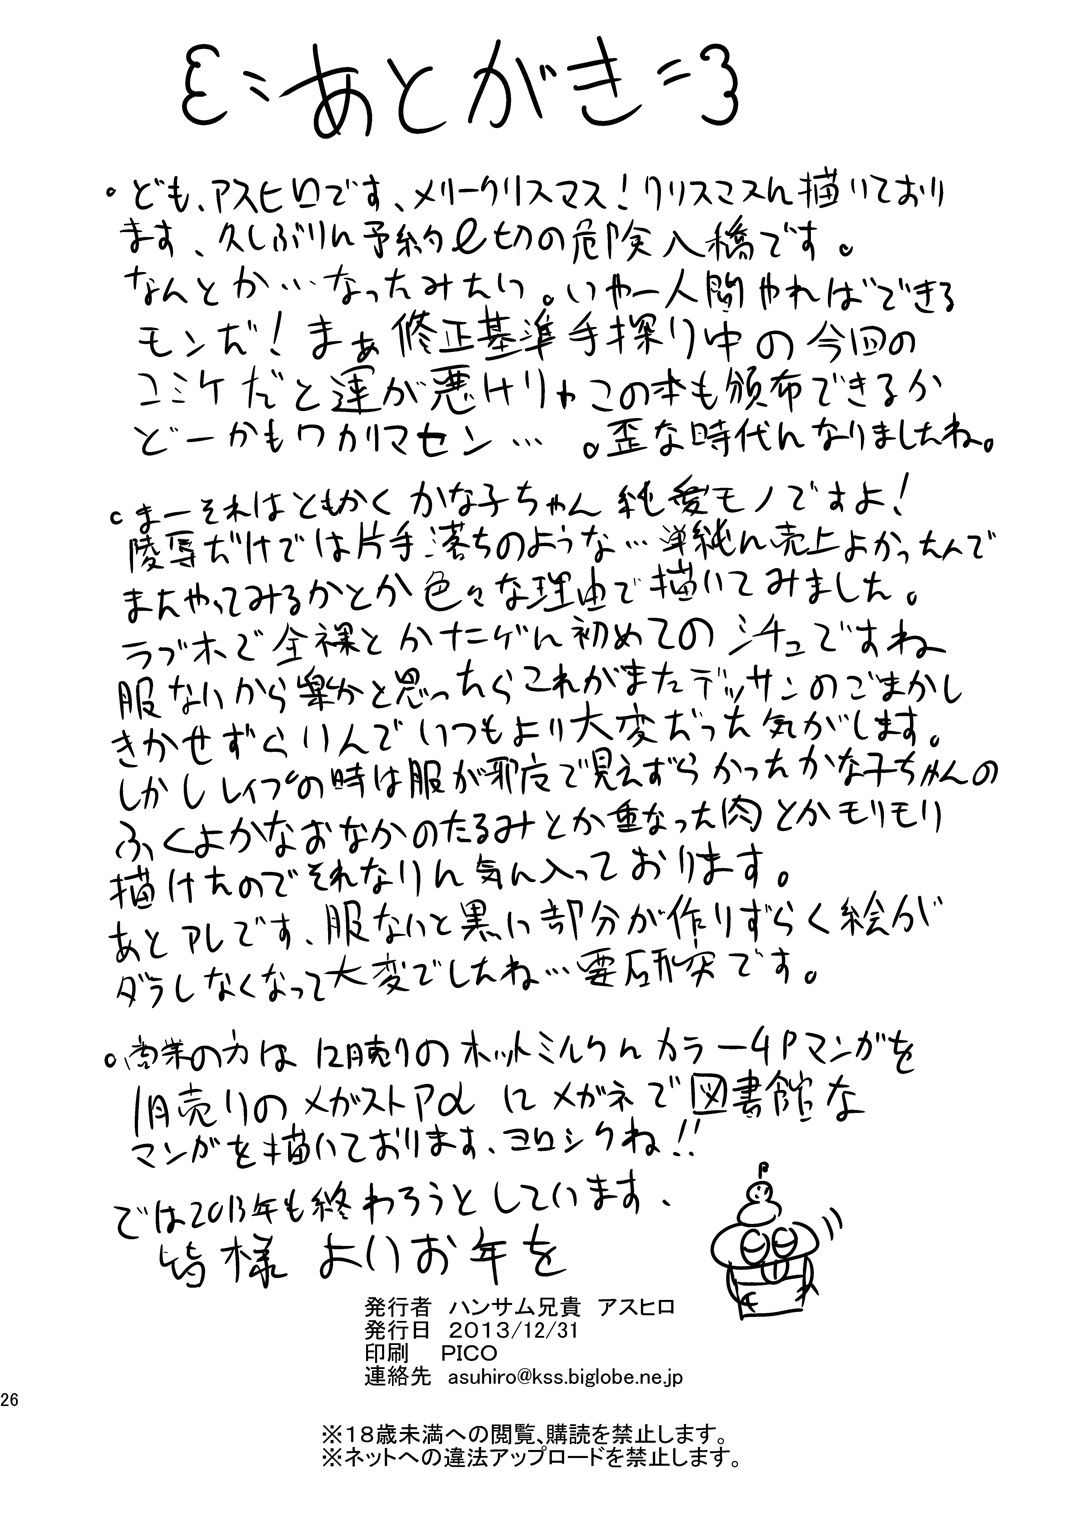 あとがき
。ども、アスヒロです、メリークリスマス！クリスマスに描いており
ます、久しぶりに予約〆切の危険入橋です。
なんとか…なったみたい。いやー人間やればできる
モンだ！まぁ修正基準手探り中の今回の
コミケだと運が悪けりゃこの本も頒布できるか
どーかもワカリマセン…。歪な時代になりましたね。
。まーそれはともかくかな子ちゃん純愛モノですよ！
陵辱だけでは片手落ちのような…単純に売上よかったんで
またやってみるかとか色々な理由で描いてみました。
ラブホで全裸とかナニゲに初めてのシチュですね
服ないから楽かと思ったらこれがまたデッサンのごまかし
きかせずらいんでいつもより大変だった気がします。
しかしレイプの時は服が邪魔で見えずらかったかな子ちゃんの
ふくよかなおなかのたるみとか重なった肉とかモリモリ
描けたのでそれなりに気に入っております。
あとアレです、服ないと黒い部分が作りずらく絵が
ダラしなくなって大変でしたね…要研究です。
。商業の方は12月売りのホットミルクにカラー4Pマンガを
1月売りのメガストアαにメガネで図書館な
マンガを描いております、ヨロシクね！！
では2013年も終わろうとしています、
皆様よいお年を
発行者　ハンサム兄貴　アスヒロ
発行日　２０１３/１２/３１
印刷　ＰＩＣＯ
連絡先　asuhiro@kss.biglobe.ne.jp
26
※１８歳未満への閲覧、購読を禁止します。
※ネットへの違法アップロードを禁止します。